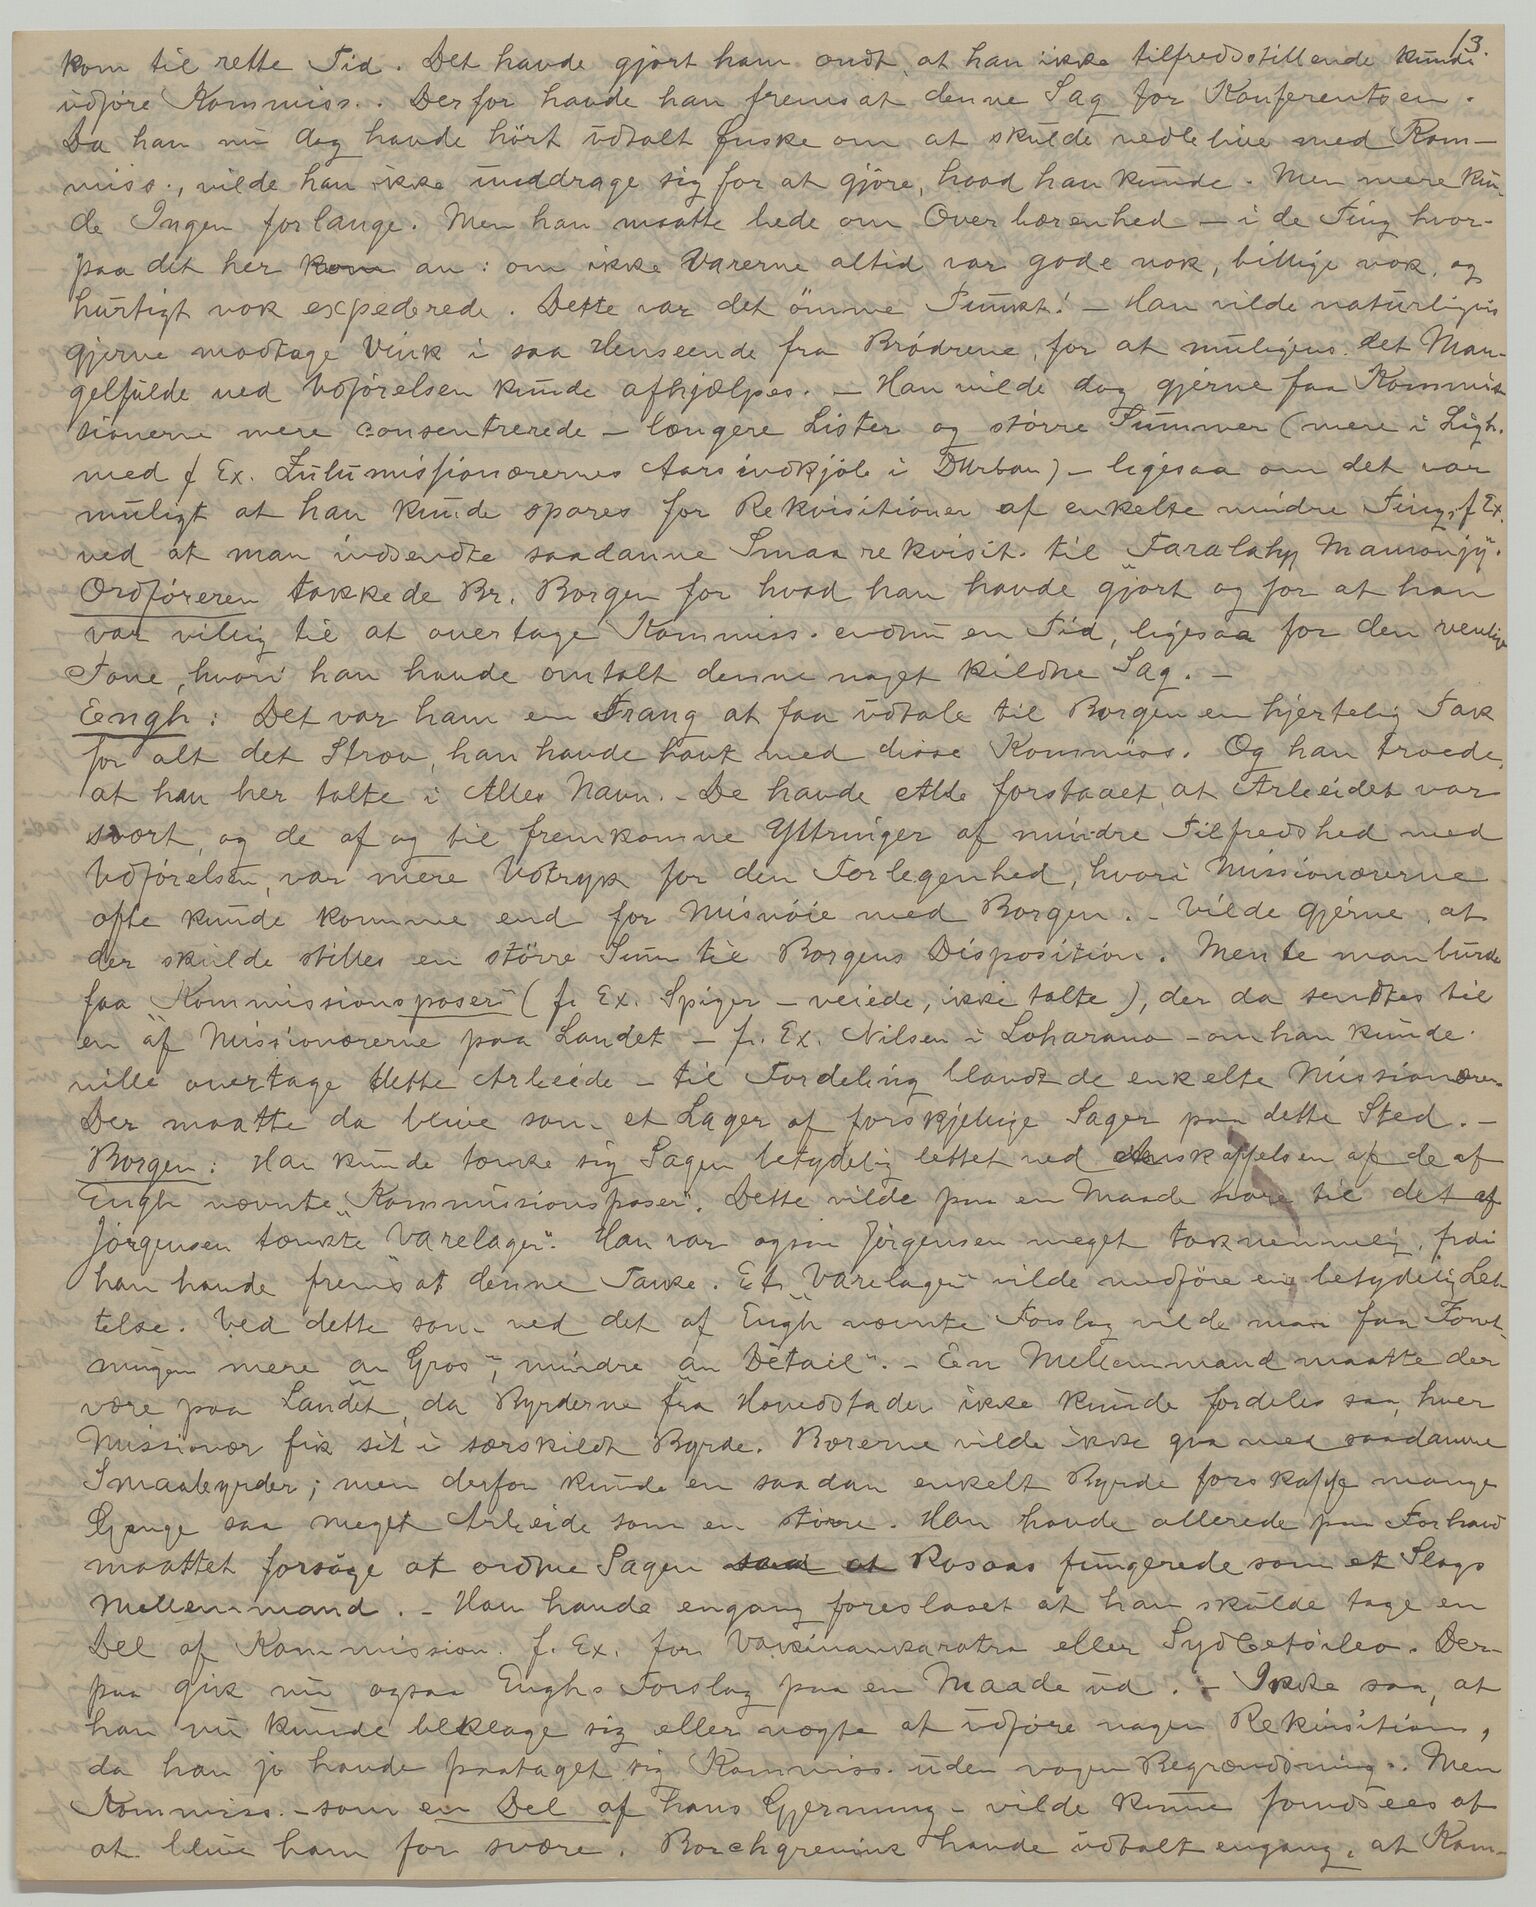 13.
kom til rette Tid. Det havde gjort ham ondt, at han ikke tilfredsstillende kunde
udføre Kommiss.. Derfor havde han fremsat denne Sag for Konferentsen.
Da han nu dog havde hørt udtalt Ønske om at skulde vedblive med Kom-
miss., vilde han ikke unddrage sig for at gjøre, hvad han kunde. Men mere kun-
de Ingen forlange. Men han maatte bede om Overbærenhed – i de Ting hvor-
paa det her kom an: om ikke Varerne altid var gode nok, billige nok, og
hurtigt nok expederede. Dette var det ömme Punkt! – Han vilde naturligvis
gjerne modtage Vink i saa Henseende fra Brødrene, for at muligens det Man-
gelfulde ved Udførelsen kunde afhjælpes. – Han vilde dog gjerne faa Kommis-
sionerne mere consentrerede – længere Lister og større Summer (mere i Ligh.
med f Ex. Zulumissionærernes Aarsindkjøb i Durban) – ligesaa om det var
muligt at han kunde spares for Rekvisitioner af enkelte mindre Ting, f Ex.
ved at man indsendte saadanne Smaarekvisit. til "Taralahy Mamonjy".
Ordføreren takkede Br. Borgen for hvad han havde gjort og for at han
var villig til at overtage Kommiss. endnu en Tid, ligesaa for den venlige
Tone, hvori han havde omtalt denne noget kildne Sag. –
Engh: Det var ham en Trang at faa udtale til Borgen en hjertelig Tak
for alt det Stræv, han havde havt med disse Kommiss. Og han troede,
at han her talte i Alles Navn. – De havde Alle forstaaet, at Arbeidet var
svært, og de af og til fremkomne Yttringer af mindre Tilfredshed med
Udførelsen, var mere Udtryk for den Forlegenhed, hvori Missionærerne
ofte kunde komme end for Misnöie med Borgen. – Vilde gjerne, at
der skulde stilles en större Sum til Borgens Disposition. Mente man burde
faa "Kommissionsposer" (f. Ex. Spiger – veiede, ikke talte), der da sendtes til
en af Missionærerne paa Landet – f. Ex. Nilsen i Loharano – om han kunde
ville overtage dette Arbeide – til Fordeling blandt de enkelte Missionærer.
Der maatte da blive som et Lager af forskjellige Sager paa dette Sted. –
Borgen: Han kunde tænke sig Sagen betydelig lettet ved Anskaffelsen af de af
Engh nævnte "Kommissionsposer". Dette vilde paa en Maade svare til det af
Jörgensen tænkte "Varelager". Han var ogsaa Jörgensen meget taknemmelig, fordi
han havde fremsat denne Tanke. Et "Varelager" vilde medføre en betydelig Let-
telse. Ved dette som ved det af Engh nævnte Forslag vilde man faa Foret-
ningen mere "an Gros", mindre "an Detail". – En Mellemmand maatte der
være paa Landet, da Byrderne fra Hovedstaden ikke kunde fordeles saa, hver
Missionær fik sit i særskildt Byrde. Bærerne vilde ikke gaa med saadanne
Smaabyrder; men derfor kunde en saadan enkelt Byrde forskaffe mange
Gange saa meget Arbeide som en större. Han havde allerede paa Forhaand
maattet forsøge at ordne Sagen saa at Rosaas fungerede som et Slags
Mellemmand. – Han havde engang foreslaaet at han skulde tage en
Del af Kommission. f. Ex. for Vakinankaratra eller Sydbetsileo. Der-
paa gik nu ogsaa Enghs Forslag paa en Maade ud. – Ikke saa, at
han nu kunde beklage sig eller nægte at udføre nogen Rekvisition,
da han jo havde paataget sig Kommiss. uden nogen Begrændsning. Men
Kommiss. – som en Del af hans Gjerning – vilde kunne
at blive ham for svære. Borchgrevink havde udtalt engang, at Kom-